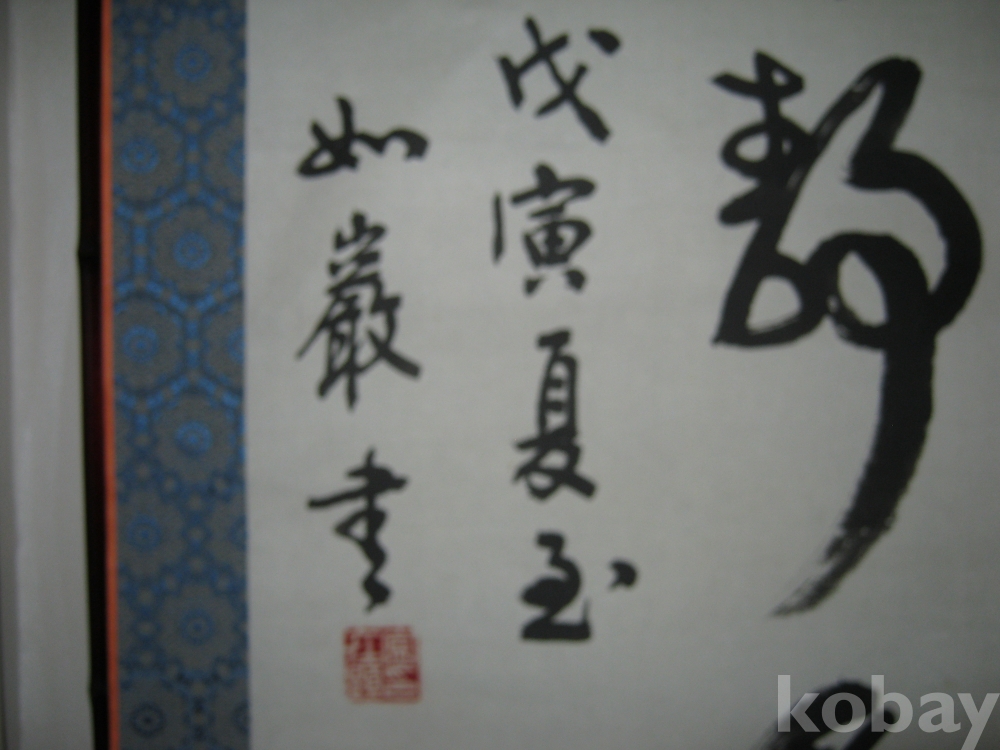 靜
戊寅夏至
如巖書
kobay